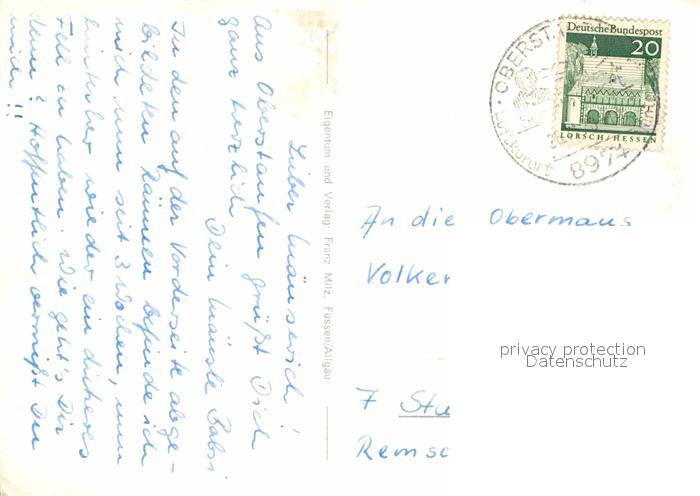 Lieber Mäuserich!
Aus Oberstaufen grüßt Dich
ganz herzlich Dein Mäusle Babsi
In den auf der Vorderseite abge-
bildeten Räumen befinde ich
mich nun seit 3 Wochen, um
hinterher wieder ein dickeres
Fell zu haben. Wie geht's Dir
denn? Hoffentlich vermißt Du
mich!!
Eigentum und Verlag: Franz Milz, Füssen/Allgäu
Deutsche Bundespost
20
LORSCH/HESSEN
OBERST
Luftkurort
8974
An die Obermaus
Volker
privacy protection
Datenschutz
7 Stu
Remsc